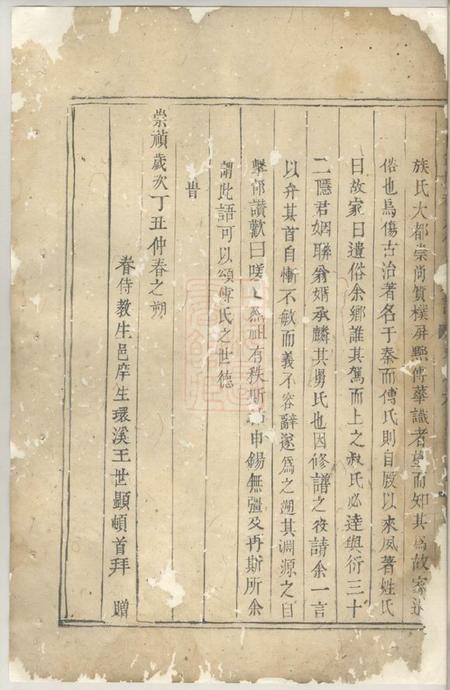 族氏大都崇尚質樸屏黜傅華識者望而知其為故家
俗也烏傷古治著名于秦而傅氏則自厥以來夙著姓氏
曰故家曰遺俗余鄉誰其駕而上之叔氏必達與衍三十
二隱君姻聯翁婿承麟其舅氏也因修譜之役請余一言
以弁其首自慚不敏而義不容辭遂為之溯其淵源之自
擊節讚歎曰嗟〻烈祖有秩斯祜申錫無疆及再斯所余
謂此語可以頌傅氏之世德
旹
崇禎歲次丁丑仲春之朔
眷侍教生邑庠生環溪王世顯頓首拜 贈